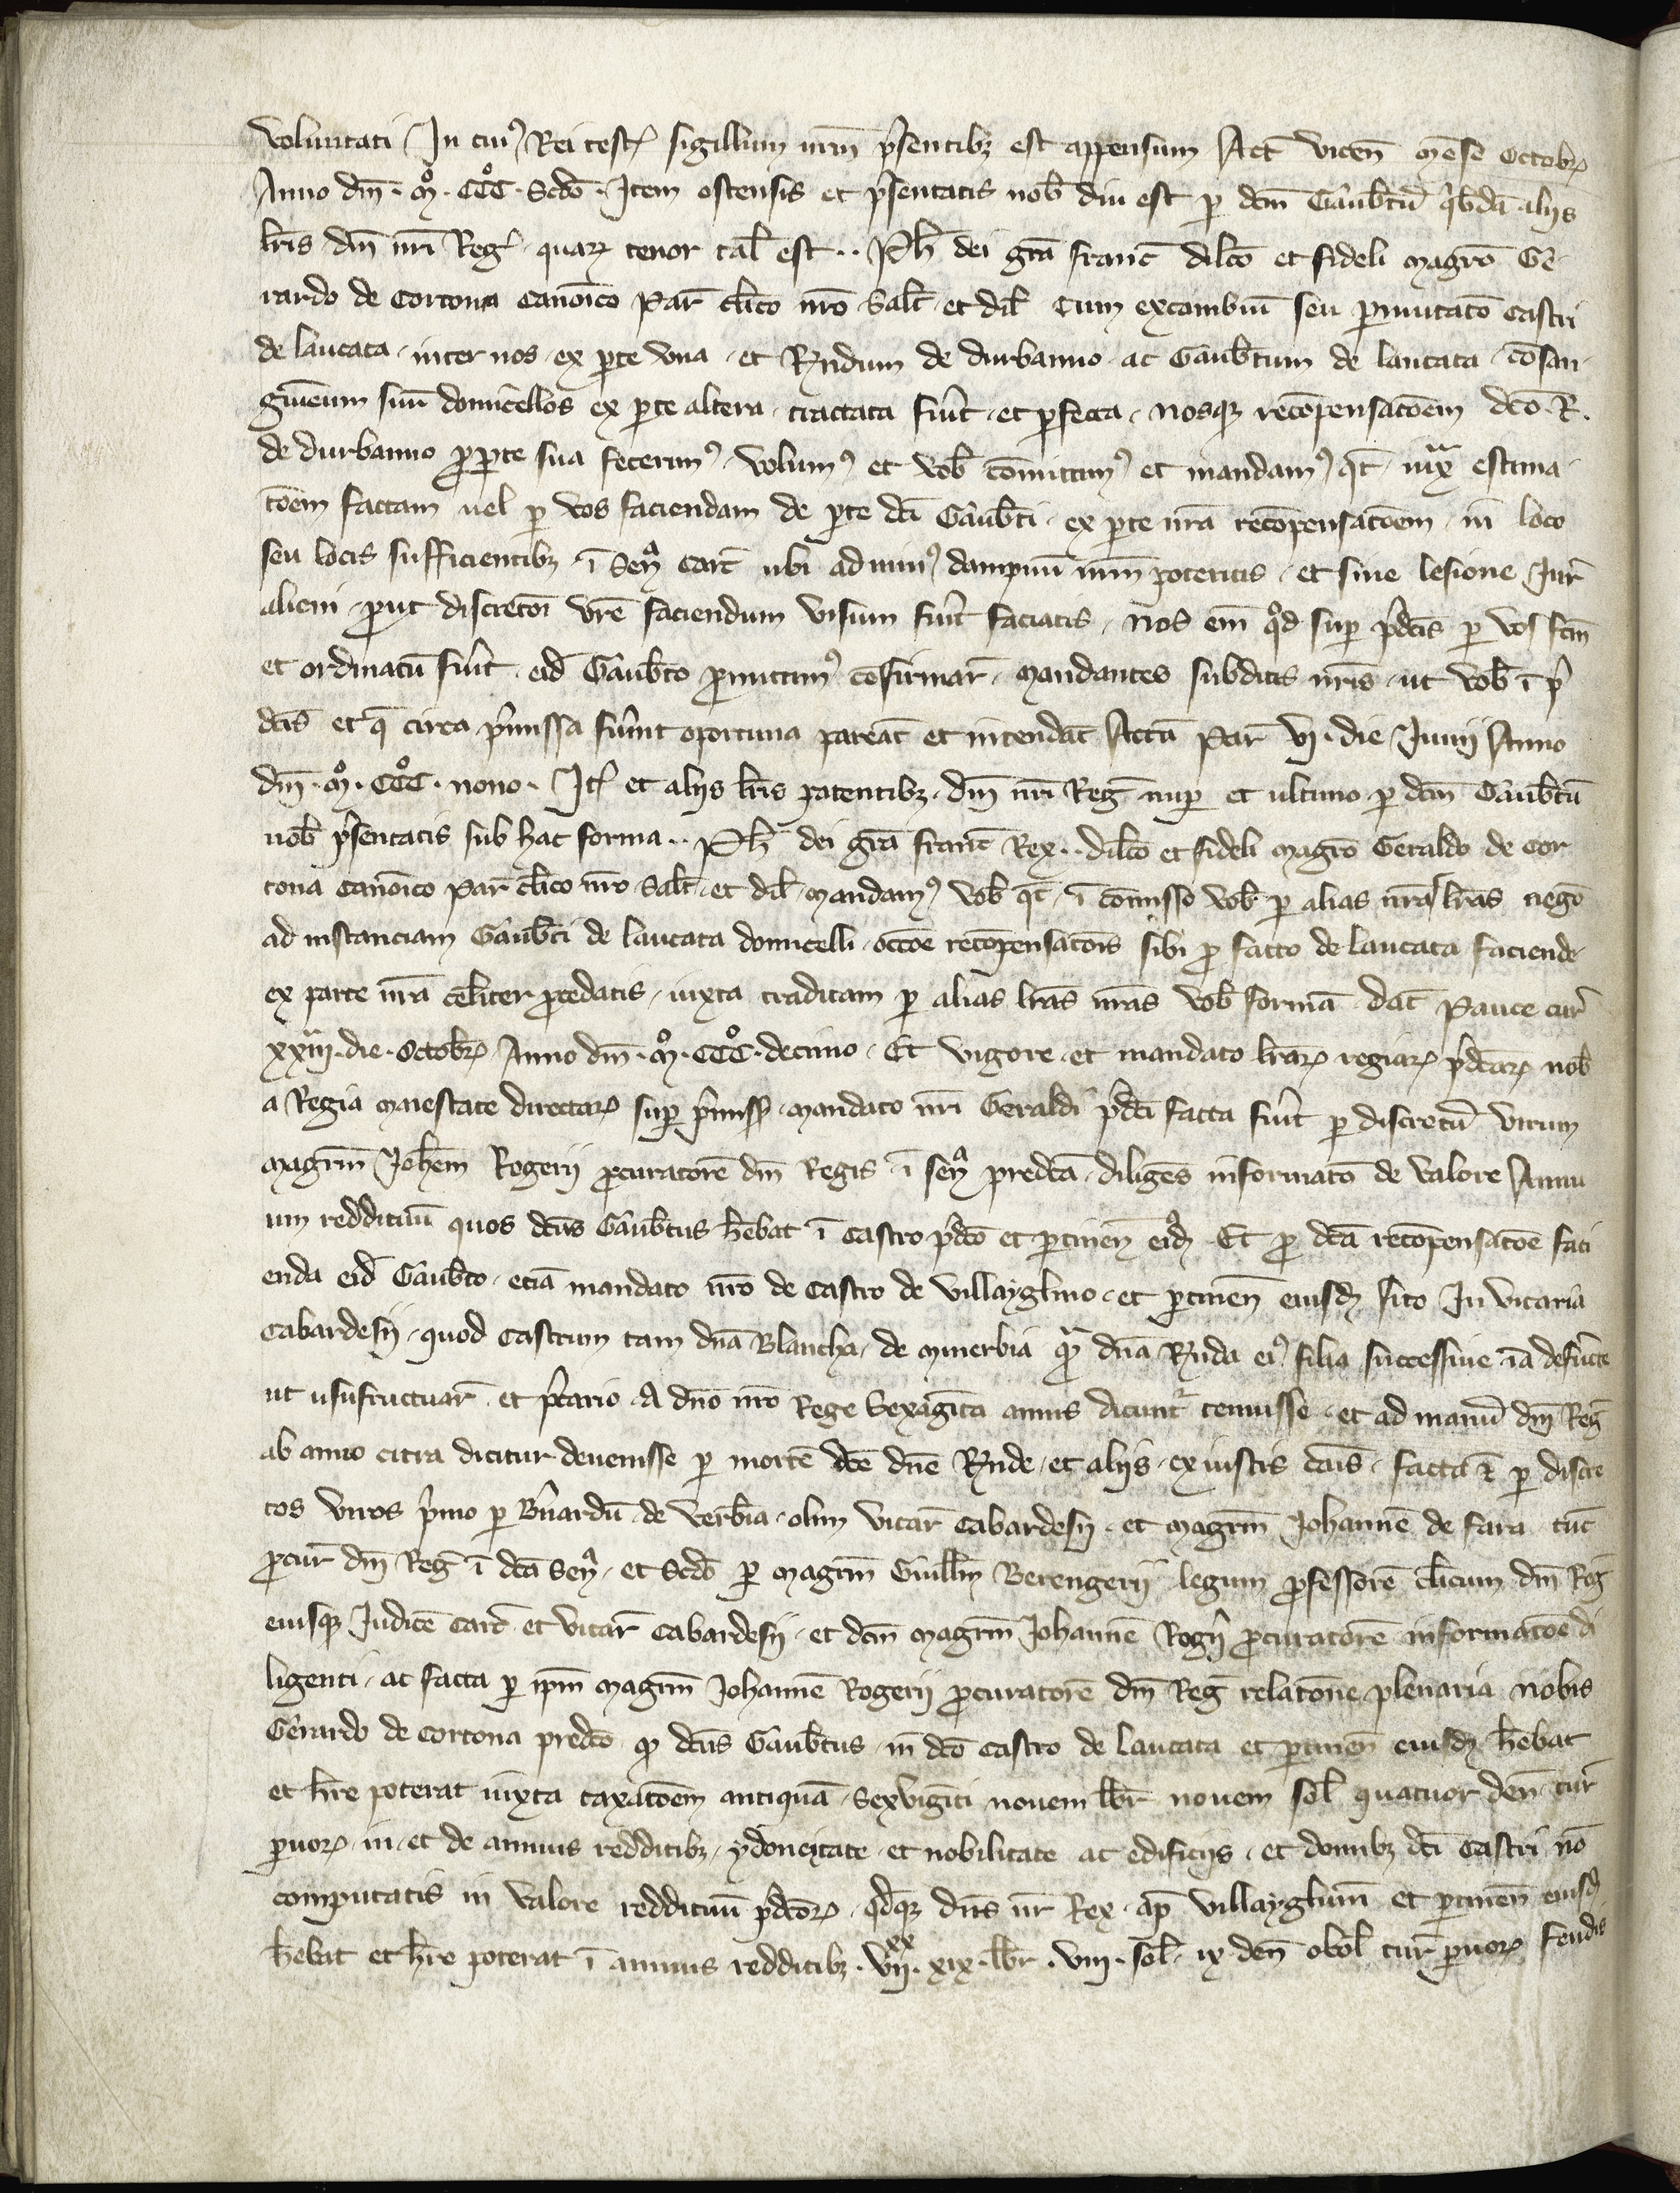 voluntati In cuiꝰ Rei testꝭ sigillum nr̄m p̄sentibꝫ est appensum Act̄ vicen̄ mēse Octobrꝭ
Anno dn̄i · mº · CCCº · Scdō · Item ostensis et p̄sentatis nob̄ diu est ꝑ dc̄m Gaubtū qͥbꝰdā alijs
lr̄is dn̄i nr̄i Regꝭ quaꝝ tenor tal̄ est ·· Ph̄ dei grā franc̄ dilc̄o et fideli magr̄o Ge
rardo de Cortona canōico par̄ cl̄ico nr̄o Salt̄ et dil̄ Cum excambiū seu ꝑmutatō castri
de laucata inter nos ex ꝑte vna et Rn̄dum de durbanno ac Gaubtum de laucata cōsan
guineum suū domicellos ex ꝑte altera tractata fuīt et ꝑfecta nosqꝫ recōpensatōem dc̄o R.
de durbanno ꝓ ꝑte sua fecerimꝰ volumꝰ et vob̄ cōmittimꝰ et mandamꝰ qt̄ iuxͣ estima
tōem factam uel ꝑ vos faciendam de ꝑte dc̄i Gaubti ex ꝑte nr̄a recōpensatōem in loco
seu locis sufficientibꝫ ī Senͣ carc̄ ubi ad minꝰ dampnū nr̄m poteritis et sine lesione Iur̄
alieni ꝓut discretōi vr̄e faciendum visum fuīt faciatis Nos em̄ qͦd suꝑ p̄dc̄is ꝑ vos fc̄m
et ordinatū fuīt eid̄ Gaubto ꝓmittimꝰ cōfirmar̄ mandantes subditis nr̄is ut vob̄ ī p̄
dc̄is et q̄ circa p̄missa fuīnt oportuna pareāt et intendāt Actū par̄ vj · die Junij Anno
dn̄i · mº · CCCº · nono · Itꝭ et alijs lr̄is patentibꝫ dn̄i nr̄i Reḡ nuꝑ et ultimo ꝑ dc̄m Gaubtū
nob̄ p̄sentatis sub hac forma ·· Ph̄ dei grā franc̄ Rex ·· dilc̄o et fideli magr̄o Geraldo de Cor
tona Canōico par̄ cl̄ico nr̄o Salt̄ et dil̄ mandamꝰ vob̄ qt̄ ī cōmisso vob̄ ꝑ alias nrās lr̄as negō
ad instanciam Gaubti de laucata domicelli occōe recōpensatōis sibi ꝓ facto de laucata faciende
ex parte nr̄a cel̄iter ꝓcedatis iuxta traditam ꝑ alias lr̄as nr̄as vob̄ formā dat̄ Pauce cur̄
xxiij · die · Octobrꝭ Anno dn̄i · mº · CCCº · decimo · Et vigore et mandato lr̄aꝝ regiaꝝ p̄dc̄aꝝ nob̄
a Regia maiestate directaꝝ suꝑ p̄miss̄ mandato nr̄i Geraldi p̄dc̄i facta fuīt ꝑ discretū virum
magr̄m Joh̄em Rogerij ꝓcuratorē dn̄i Regis ī senͣ predc̄a diligēs informatō de valore Annu
um reddituū quos dc̄us Gaubtus hēbat ī castro p̄dc̄o et ꝑtineñ eiꝰdꝫ Et ꝓ dc̄a recōpensatōe faci
enda eid̄ Gaubto etiā mandato nr̄o de castro de villayglino et ꝑtineñ eiusdꝫ sito In vicaria
Cabardesij quod castrum tam dn̄a Blancha de minerbia qͣꝫ dn̄a Rn̄da eiꝰ filia successiue iā defūcte
ut usufructuar̄ et p̄cario A dn̄o nr̄o Rege Sexagīta annis dicunt̄ tenuisse et ad manū dn̄i Reḡ
ab anno citra dicitur deuenisse ꝑ mortē dc̄e dn̄e Rn̄de et alijs ex iustis cāis facta ē ꝑ discre
tos viros p̄mo ꝑ Bn̄ardū de Verbia olim vicar̄ Cabardesij et magr̄m Johannē de fara tūc
ꝓcur̄ dn̄i Reḡ ī dc̄a Senͣ et Scdō ꝑ magr̄m Guill̄m Berengerij legum ꝓfessorē cl̄icum dn̄i Reḡ
eiusqꝫ Judicē carc̄ et vicar̄ Cabardesij et dc̄m magr̄m Johannē Rogij̄ ꝓcuratorē informatōe di
ligenti ac facta ꝑ ip̄m magr̄m Johannē Rogerij ꝓcuratorē dn̄i Reḡ relatōne plenaria nobis
Gerardo de cortona predc̄o qꝫ dc̄us Gaubtus in dc̄o castro de laucata et ꝑtineñ eiusdꝫ hēbat
et hr̄e poterat iuxta taxatōem antiquā Sexvigīti nouem lbr̄ nouem sol̄ quatuor deñ tur̄
ꝑuoꝝ in et de annuis redditibꝫ ydoneitate et nobilitate ac edificijs et domibꝫ dc̄i castri nō
computatis in valore reddituū p̄dc̄oꝝ qͦdqꝫ dn̄s nr̄ Rex ap̄ villayglinū et ꝑtineñ eiusdꝫ
hēbat et hr̄e poterat ī annuis redditibꝫ · vijˣˣ · xix · lbr̄ · viij · sol̄ · ix deñ obol̄ tur̄ ꝑuoꝝ feudis